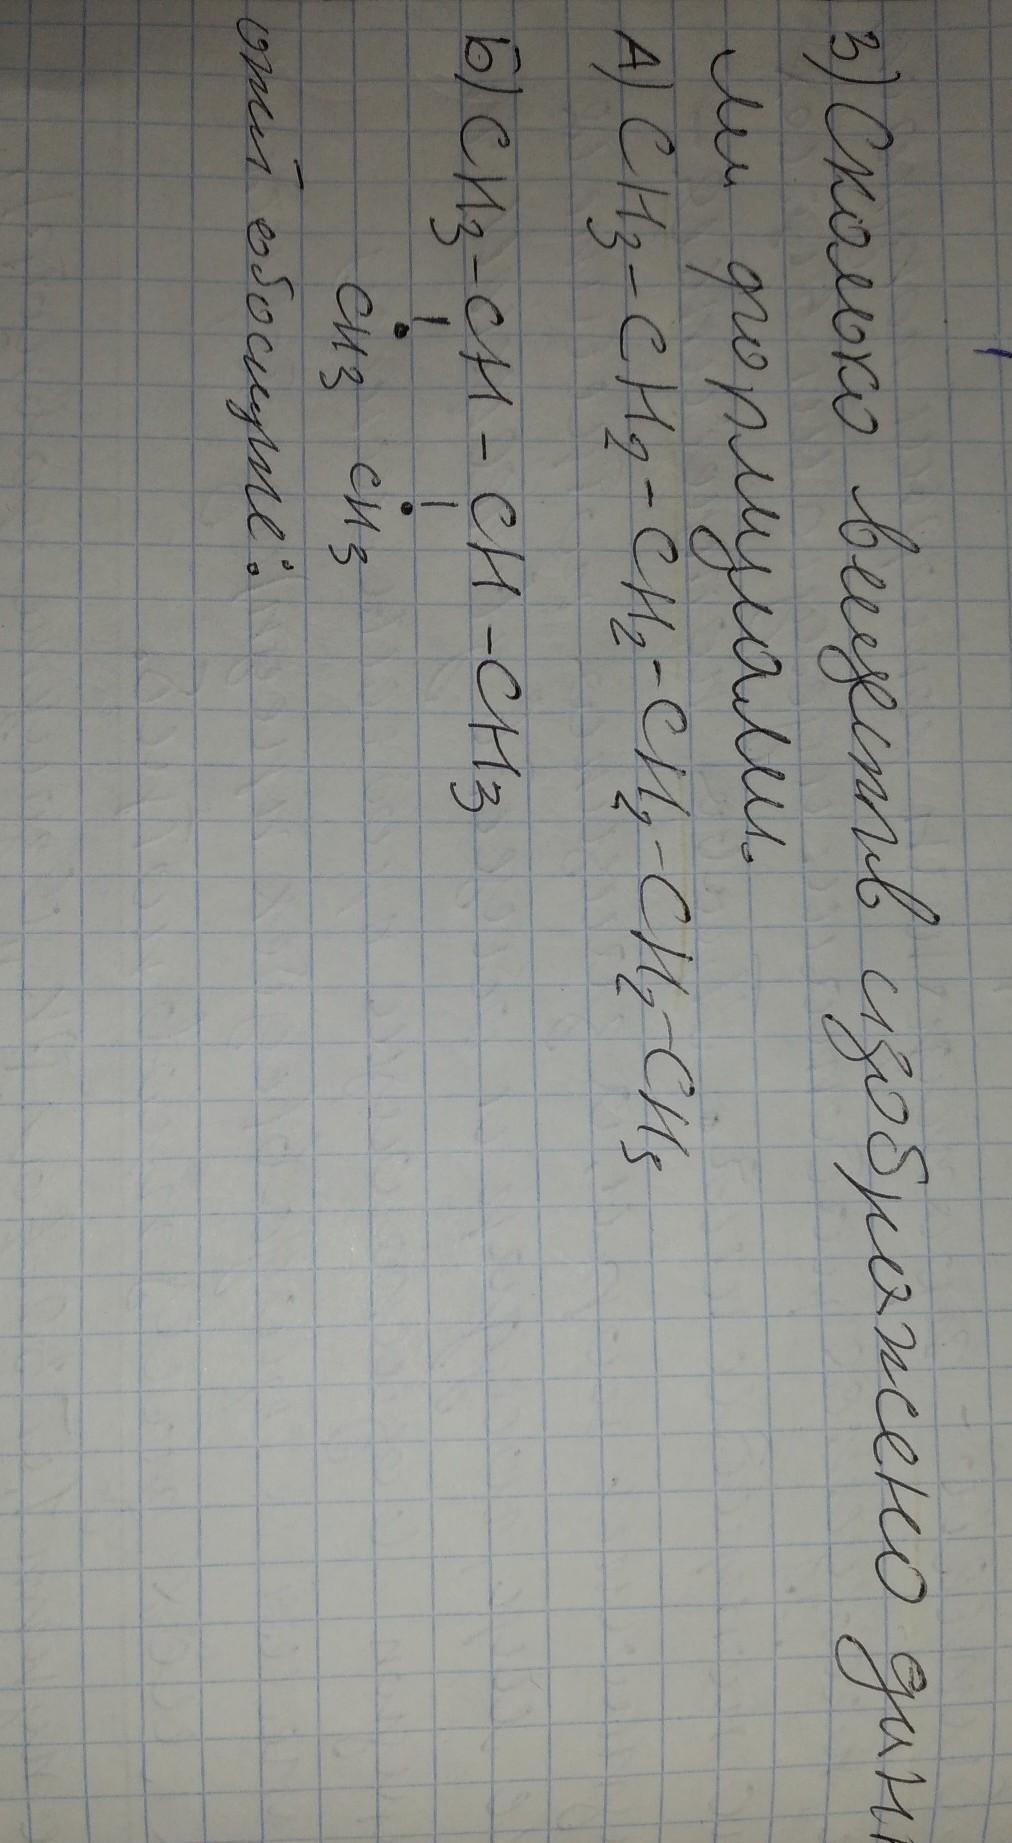 3) Сколько веществ изображено дин
ми формулами.
А) CH3-CH2-CH2-CH2-CH2-CH3
Б) CH3-CH-CH-CH3
CH3 CH3
отв обоснуте: